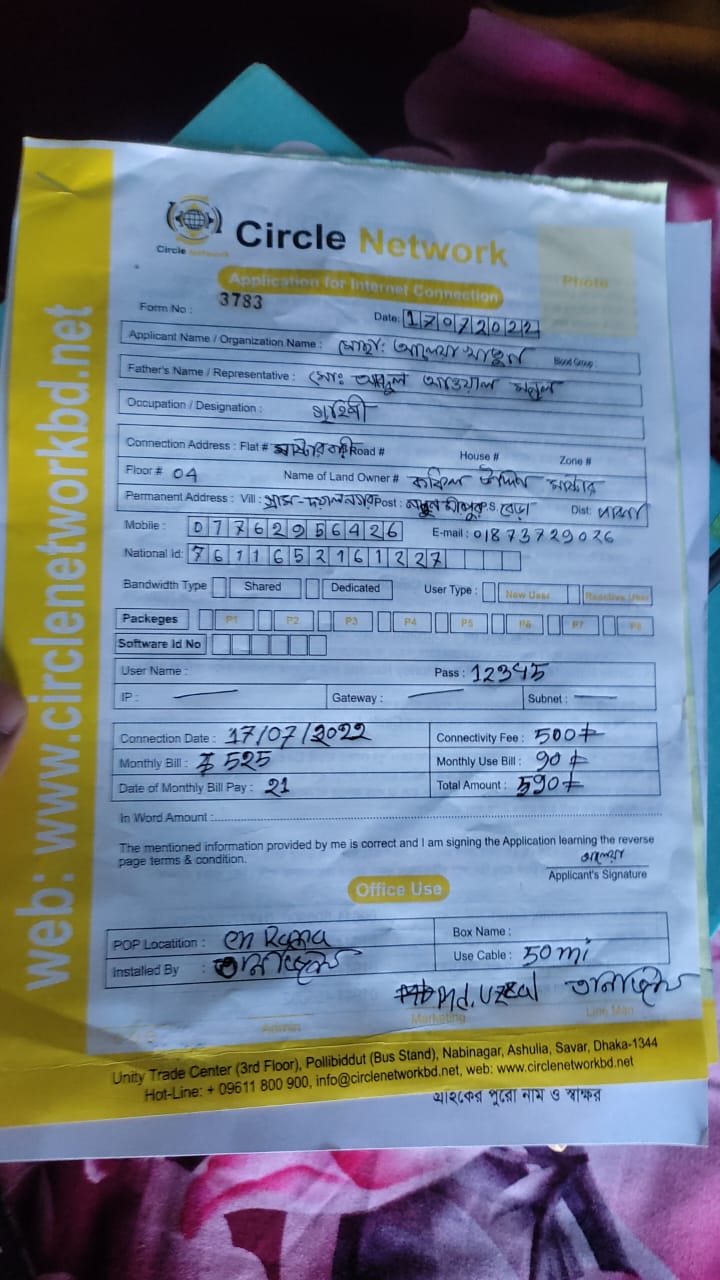 web: www.circlenetworkbd.net
Circle Network
Circle Network
Application for Internet Connection
Photo
Form No : 3783
Date: 17072022
Applicant Name / Organization Name : মোছা: আলেয়া খাতুন Blood Group :
Father's Name / Representative : মোঃ আব্দুল আওয়াল
Occupation / Designation : গৃহিণী
Connection Address : Flat # Road # House # Zone #
Floor # 04 Name of Land Owner # উদ্দিন মাস্টার
Permanent Address : Vill : গ্রাম - Post : P.S. বেড়া Dist: পাবনা
Mobile : 07762956426 E-mail : 01873729026
National Id: 7611652161227
Bandwidth Type Shared Dedicated User Type : New User Reactive User
Packeges P1 P2 P3 P4 P5 P6 P7 P8
Software Id No
User Name : Pass : 12345
IP : Gateway : Subnet :
Connection Date : 17/07/2022 Connectivity Fee : 500
Monthly Bill : 525 Monthly Use Bill : 90
Date of Monthly Bill Pay : 21 Total Amount : 590
In Word Amount :
The mentioned information provided by me is correct and I am signing the Application learning the reverse
page terms & condition.
আলেয়া
Applicant's Signature
Office Use
POP Locatition : Box Name :
Installed By : Use Cable : 50 mi
Md. Uzzal
Admin Marketing Line Man
Unity Trade Center (3rd Floor), Pollibiddut (Bus Stand), Nabinagar, Ashulia, Savar, Dhaka-1344
Hot-Line: + 09611 800 900, info@circlenetworkbd.net, web: www.circlenetworkbd.net
গ্রাহকের পুরো নাম ও স্বাক্ষর